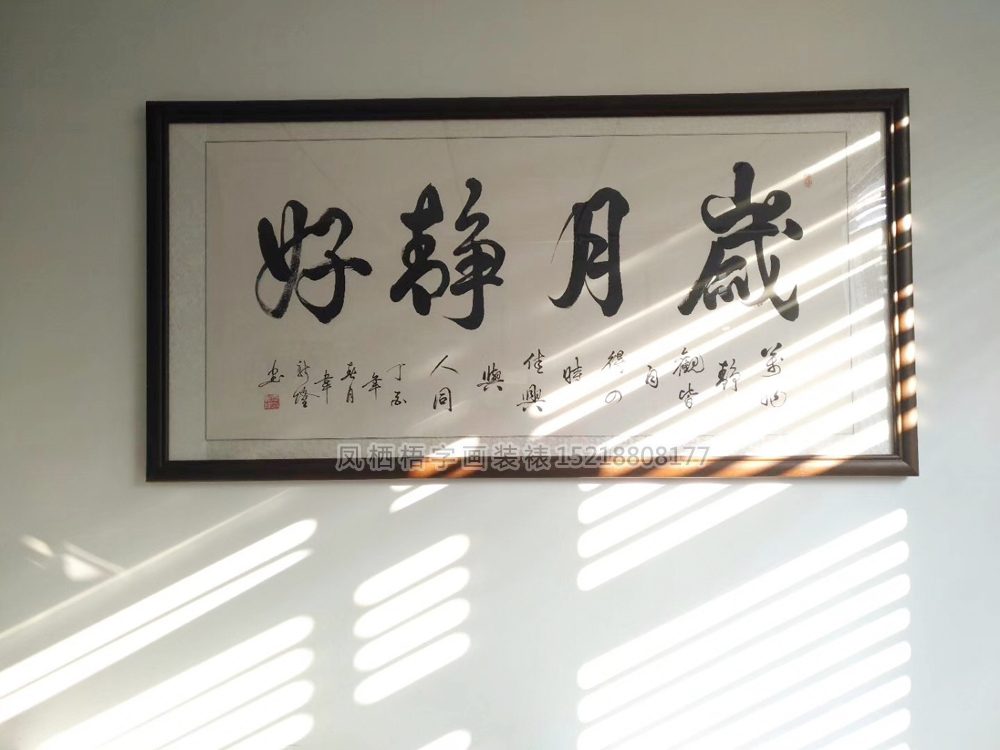 歲月静好
萬物静觀皆自得四時佳興與人同 丁酉年春月韋
凤栖梧字画装裱 15218808177